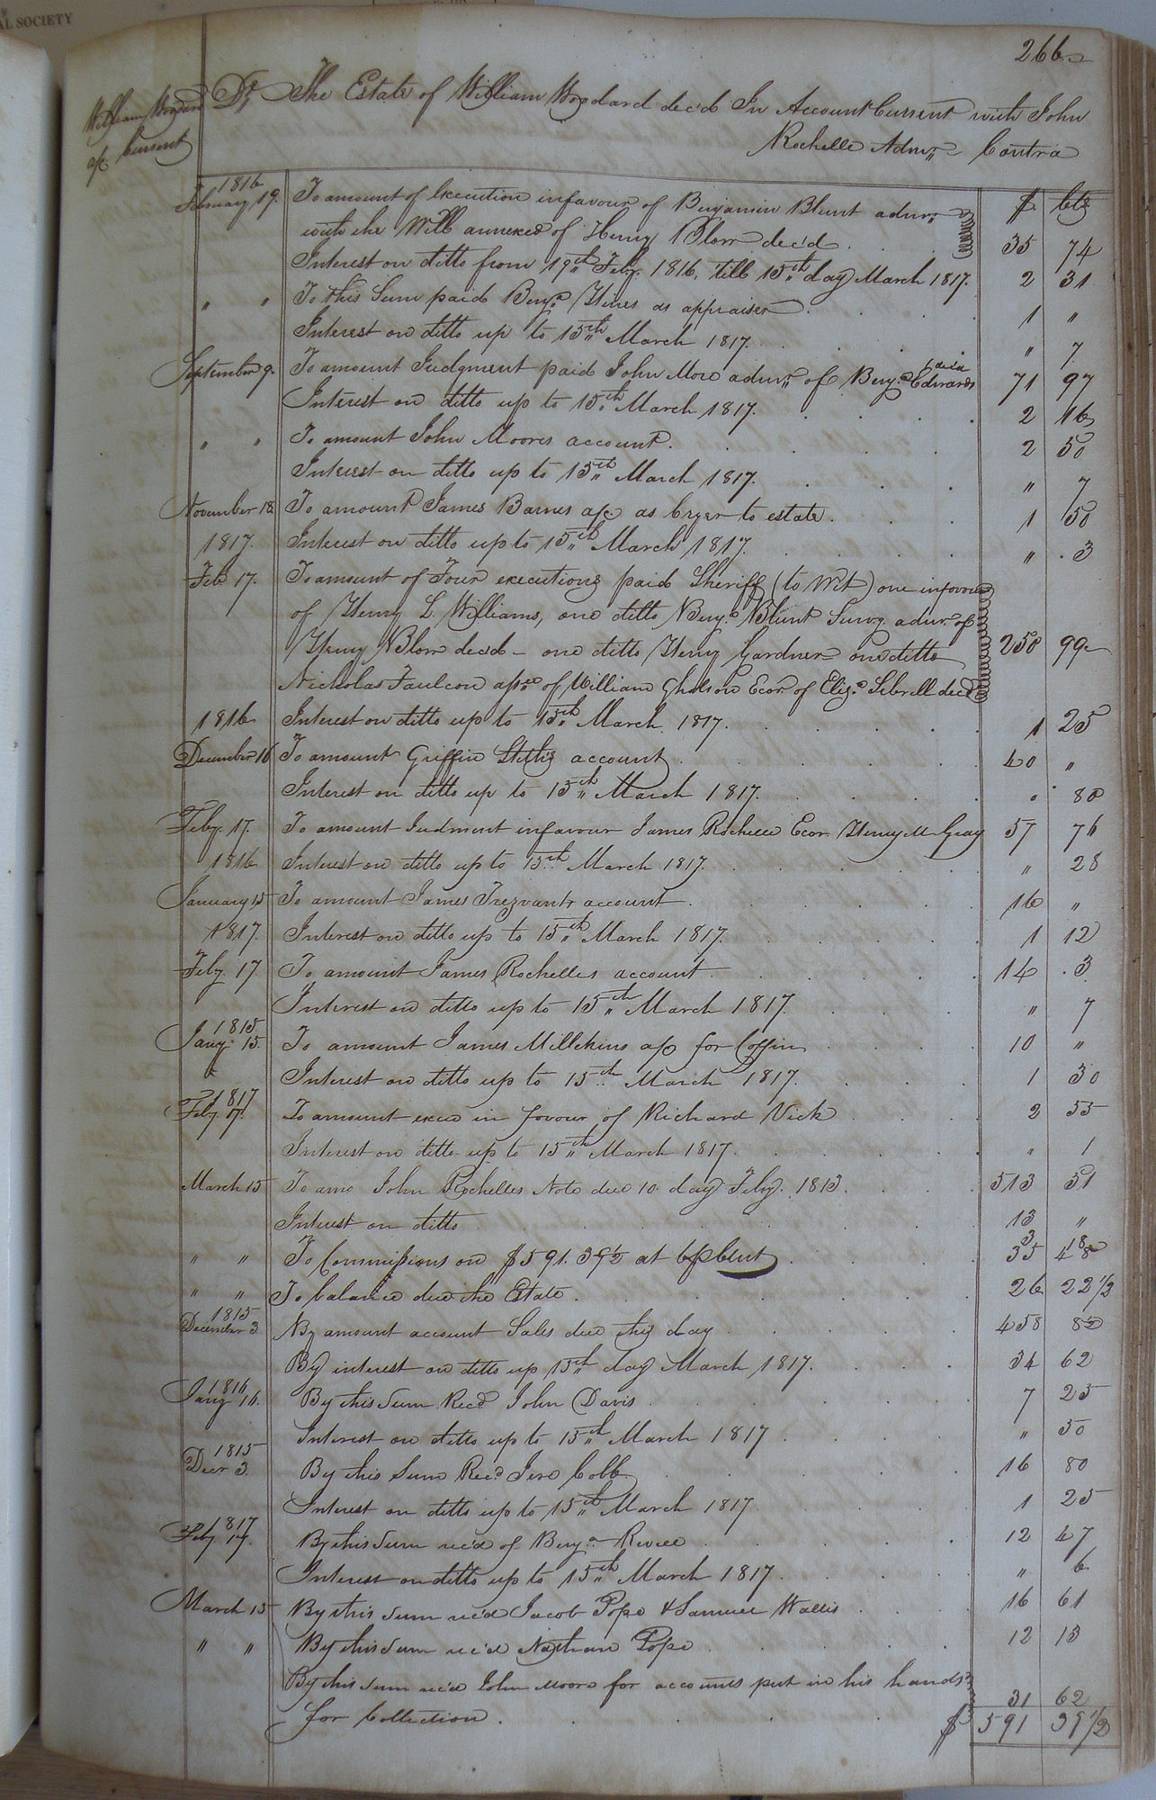 AL SOCIETY
266
William Woodard
a/c Current
Dr The Estate of William Woodard dec'd In Account Current with John
Rochelle Admr Contra
1816 $ Cts
February 19. To amount of Execution infavour of Benjamin Blunt admr
with the Will annexed of Henry Blow dec'd 35 74
Interest on ditto from 19th Feby. 1816, till 15th day March 1817. 2 31
" " To this Sum paid Benja. Hines as appraiser 1 "
Interest on ditto up to 15th March 1817. " 7
September 9. To amount Judgment paid John Moore admr of Benja. Edwards 71 97
Interest on ditto up to 15th March 1817. 2 16
" " To amount John Moores account. 2 50
Interest on ditto up to 15th March 1817. " 7
November 18 To amount James Barnes a/c as Cryer to estate. 1 50
1817. Interest on ditto up to 15th March 1817. " 3
Feb 17. To amount of Four executions paid Sheriff (to wit) one infavour
of Henry L Williams, one ditto Benja. Blunt Survg. admr of
Henry Blow dec'd - one ditto Henry Gardner one ditto 250 99
Nicholas Faulcon of William Gholson Ecor of Eliza. Sebrell dec'd
1816 Interest on ditto up to 15th March 1817. 1 25
December 16 To amount Griffin Stiths account 40 "
Interest on ditto up to 15th March 1817. " 80
Feby. 17. To amount Judment infavour James Rochelle Ecor Henry M Gray 57 76
1816 Interest on ditto up to 15th March 1817. " 28
January 15 To amount James Trezvants account. 16 "
1817. Interest on ditto up to 15th March 1817. 1 12
Feby. 17 To amount James Rochelles account 14 3
Interest on ditto up to 15th March 1817. " 7
1815
Jany. 15. To amount James Millekins a/c for Coffin 10 "
Interest on ditto up to 15th March 1817. 1 30
1817
Feby. 17. To amount in favour of Richard Vick 2 55
Interest on ditto up to 15th March 1817. " 1
March 15 To amo John Rochelles Note due 10 day Feby. 1813. 513 51
Interest on ditto 13 "
" " To Commissions on $591.39½ at 6 p Cent 35 48
" " To balance due the Estate. 26 22½
1815
December 3. By amount account Sales due this day 458 80
By interest on ditto up 15th day March 1817. 34 62
1816
Jany 16. By this Sum Recd John Davis 7 25
Interest on ditto up to 15th March 1817 " 50
1815
Decr 3. By this Sum Recd Jero Cobb 16 80
Interest on ditto up to 15th March 1817 1 25
1817
Feby. 17. By this Sum rec'd of Benja. 12 47
Interest on ditto up to 15th March 1817. " 6
March 15 By this Sum rec'd Jacob Pope & Samuel Wallis 16 61
" " By this Sum rec'd Nathan Pope 12 13
By this Sum rec'd John Moore for accounts put in his hands
for Collection. 31 62
$ 591 39½